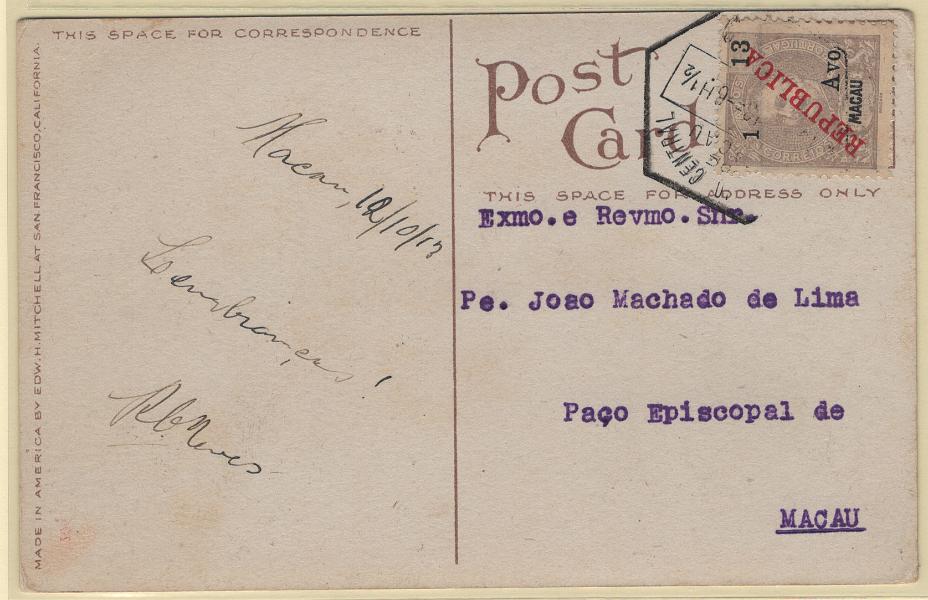 THIS SPACE FOR CORRESPONDENCE
MADE IN AMERICA BY EDW. H. MITCHELL AT SAN FRANCISCO, CALIFORNIA.
Macau, 12/10/13
Lembranças!
Neves
Post
Card
THIS SPACE FOR ADDRESS ONLY
1 13
REPUBLICA
Avo
MACAU
CORREIO
CENTRAL
6H 1/2
Exmo.e Revmo.Snr.
Pe. Joao Machado de Lima
Paço Episcopal de
MACAU